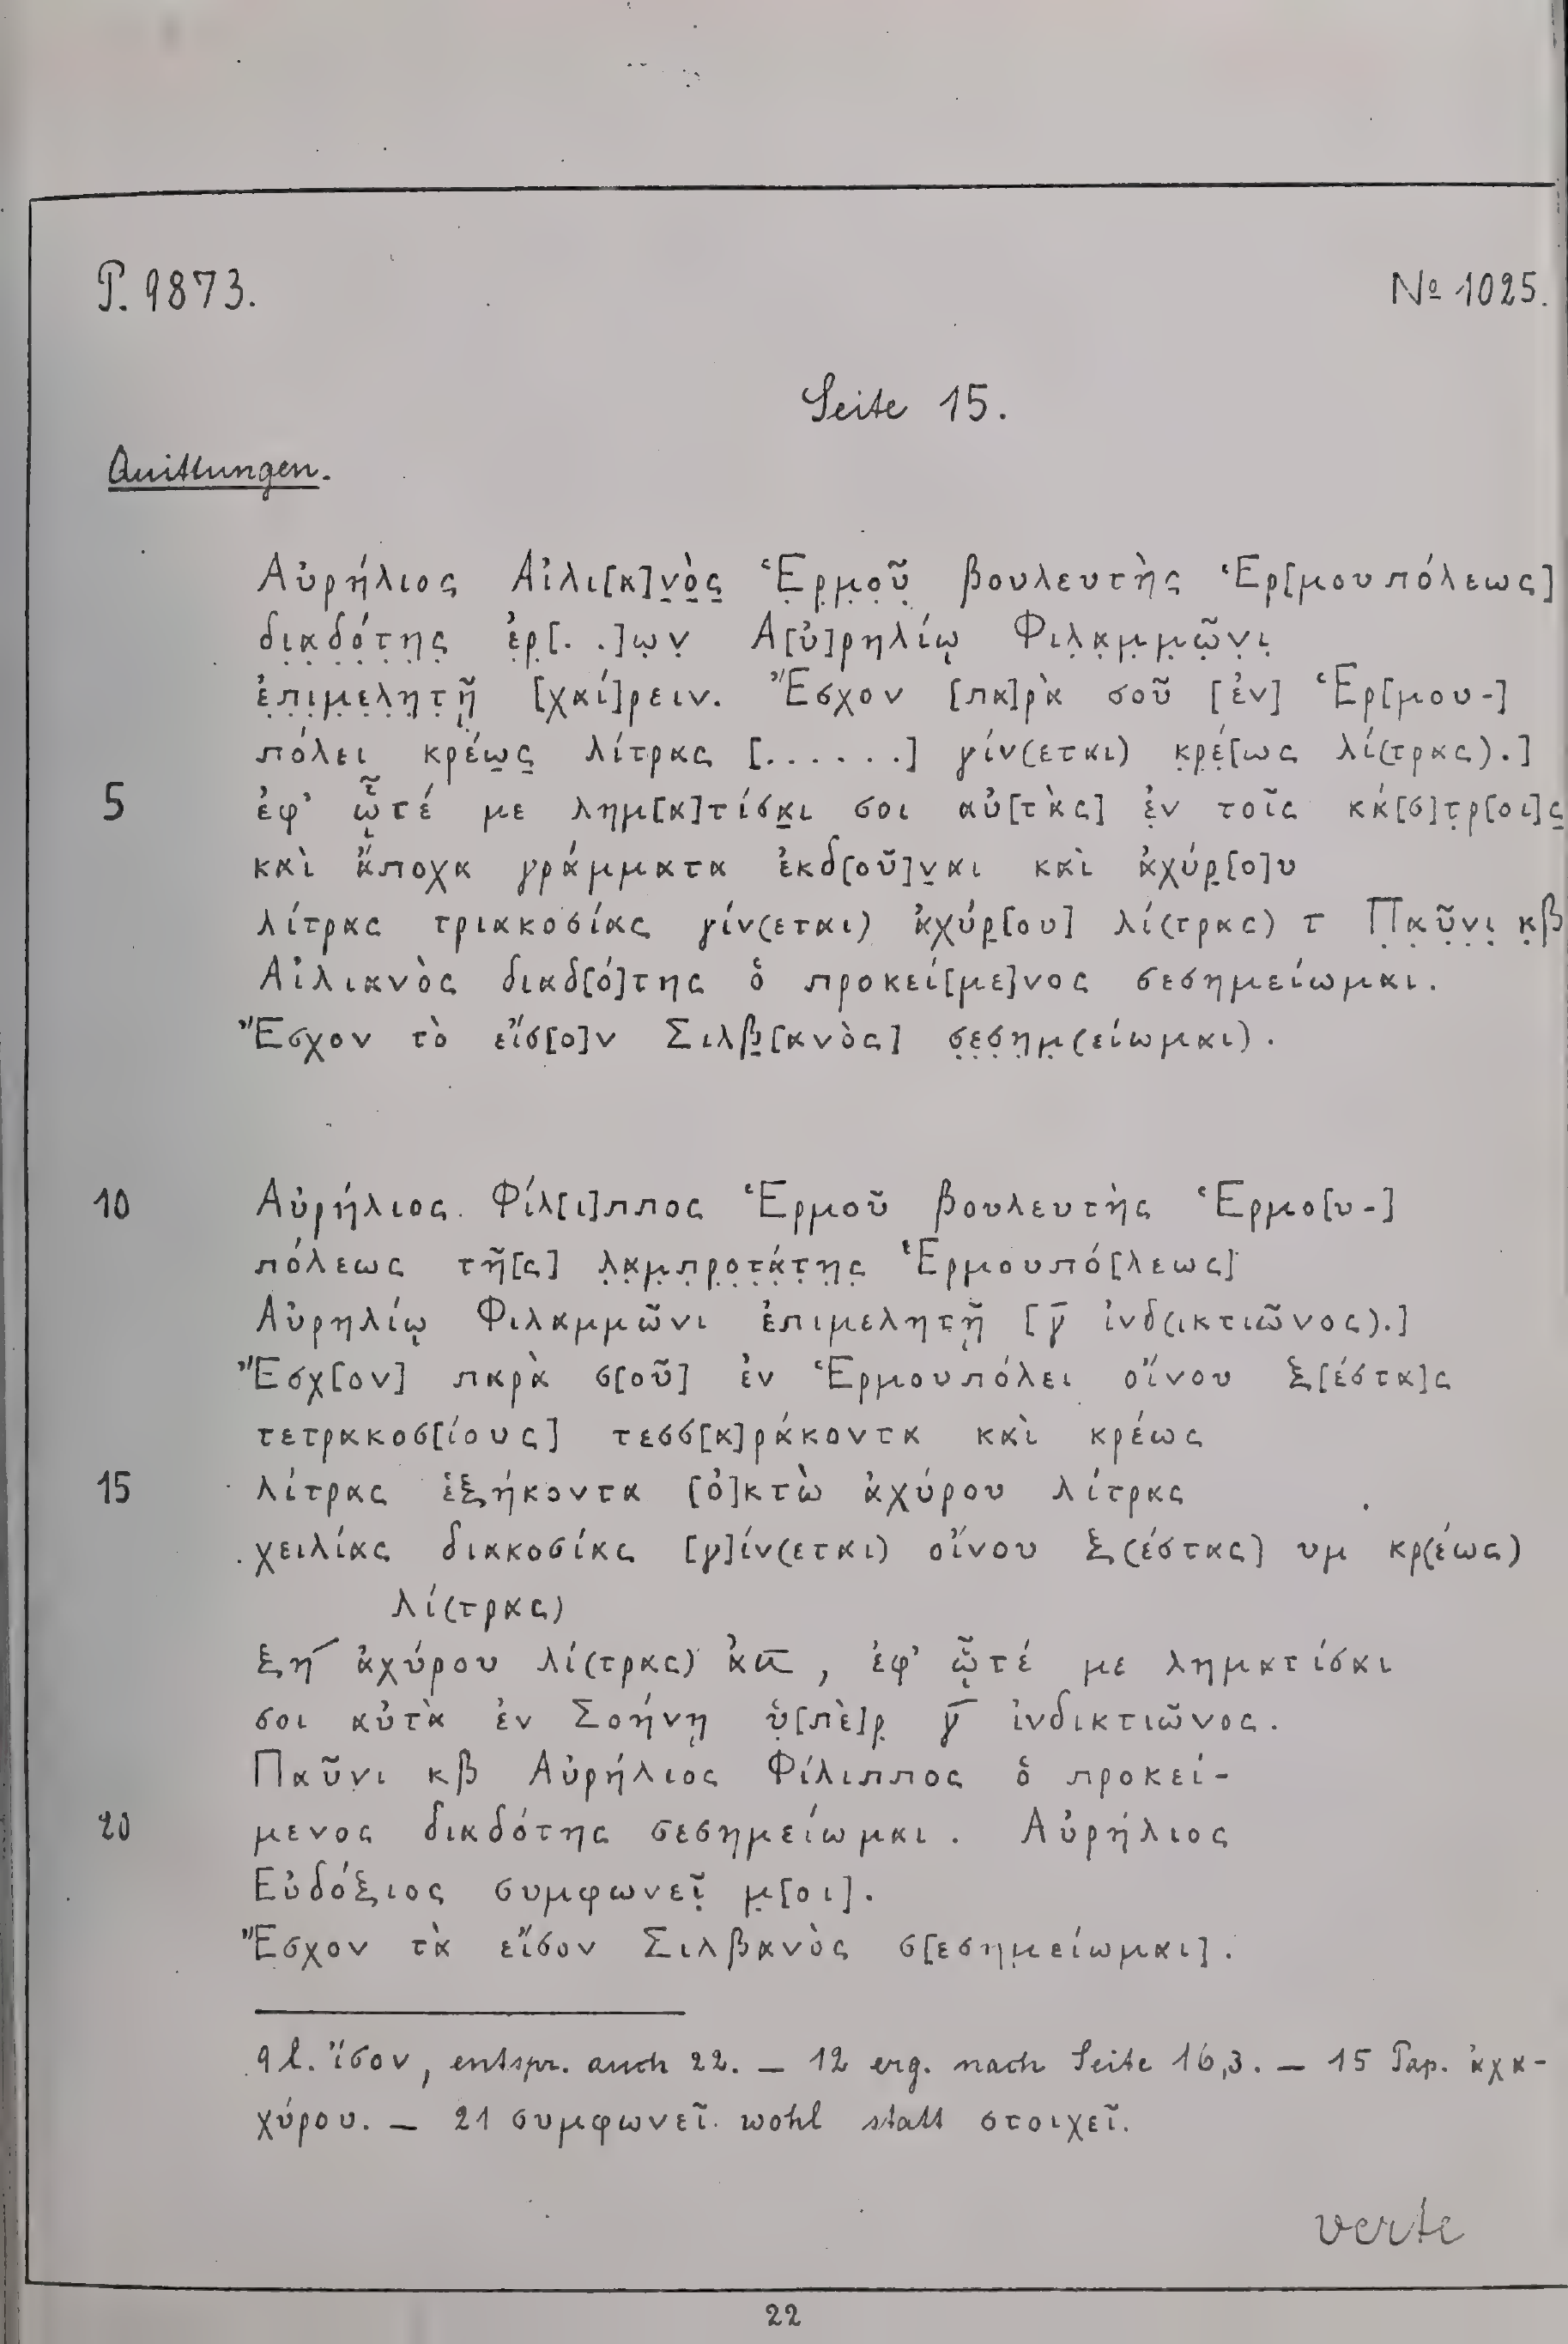 P. 9873.
№ 1025.
Seite 15.
Quittungen.
Αὐρήλιος Αἰλι[α]ν̣ὸ̣ς̣ Ἑ̣ρ̣μ̣ο̣ῦ̣ βουλευτὴς Ἑρ[μουπόλεως]
δ̣ι̣α̣δ̣ό̣τ̣η̣ς̣ ἐ̣ρ̣[. .]ω̣ν̣ Α[ὐ]ρηλίῳ Φιλ̣α̣μ̣μ̣ῶ̣ν̣ι̣
ἐ̣π̣ι̣μ̣ε̣λ̣η̣τ̣ῇ̣ [χαί]ρειν. Ἔσχον [πα]ρὰ σοῦ [ἐν] Ἑρ[μου-]
πόλει κρέω̣ς̣ λίτρας [. . . . . .] γίν(εται) κ̣ρ̣έ̣[ως λί(τρας).]
5 ἐφ' ᾧτέ με λημ[α]τίσα̣ι σοι αὐ[τὰς] ἐ̣ν τοῖς κά[σ]τ̣ρ[οι]ς̣
καὶ ἄποχα γράμματα ἐκδ[οῦ]ν̣αι καὶ ἀχύρ̣[ο]υ
λίτρας τριακοσίας γίν(εται) ἀχύρ̣[ου] λί(τρας) τ Π̣α̣ῦ̣ν̣ι̣ κ̣β
Αἰλιανὸς διαδ[ό]της ὁ προκεί[με]νος σεσημείωμαι.
Ἔσχον τὸ εἴσ[ο]ν Σιλβ̣[ανὸς] σ̣ε̣σ̣η̣μ̣(είωμαι).
10 Αὐρήλιος Φίλ[ι]ππος Ἑρμοῦ βουλευτὴς Ἑρμο[υ-]
πόλεως τῆ[ς] λ̣α̣μ̣π̣ρ̣ο̣τ̣ά̣τ̣η̣ς̣ Ἑρμουπό[λεως]
Αὐρηλίῳ Φιλαμμῶνι ἐπιμελητῇ [γ̅ ἰνδ(ικτιῶνος).]
Ἔσχ[ον] παρὰ σ[οῦ] ἐν Ἑρμουπόλει οἴνου ξ[έστα]ς
τετρακοσ[ίους] τεσσ[α]ράκοντα καὶ κρέως
15 λίτρας ἑξήκοντα [ὀ]κτὼ ἀχύρου λίτρας
χειλίας διακοσίας [γ]ίν(εται) οἴνου ξ(έστας) υμ κρ(έως)
λί(τρας)
ξη̅ ἀχύρου λί(τρας) ἀσ̅, ἐφ' ᾧτέ με ληματίσαι
σοι αὐτὰ ἐν Σοήνῃ ὑ̣[πὲ]ρ̣ γ̅ ἰνδικτιῶνος.
Παῦνι κβ Αὐρήλιος Φίλιππος ὁ προκεί-
20 μενος διαδότης σεσημείωμαι. Αὐρήλιος
Εὐδόξιος συμφωνεῖ̣ μ̣[οι].
Ἔσχον τὰ εἴσον Σιλβανὸς σ[εσημείωμαι].
9 l. ἴσον, entspr. auch 22. – 12 erg. nach Seite 16,3. – 15 Pap. ἀχα-
χύρου. – 21 συμφωνεῖ wohl statt στοιχεῖ.
verte
22